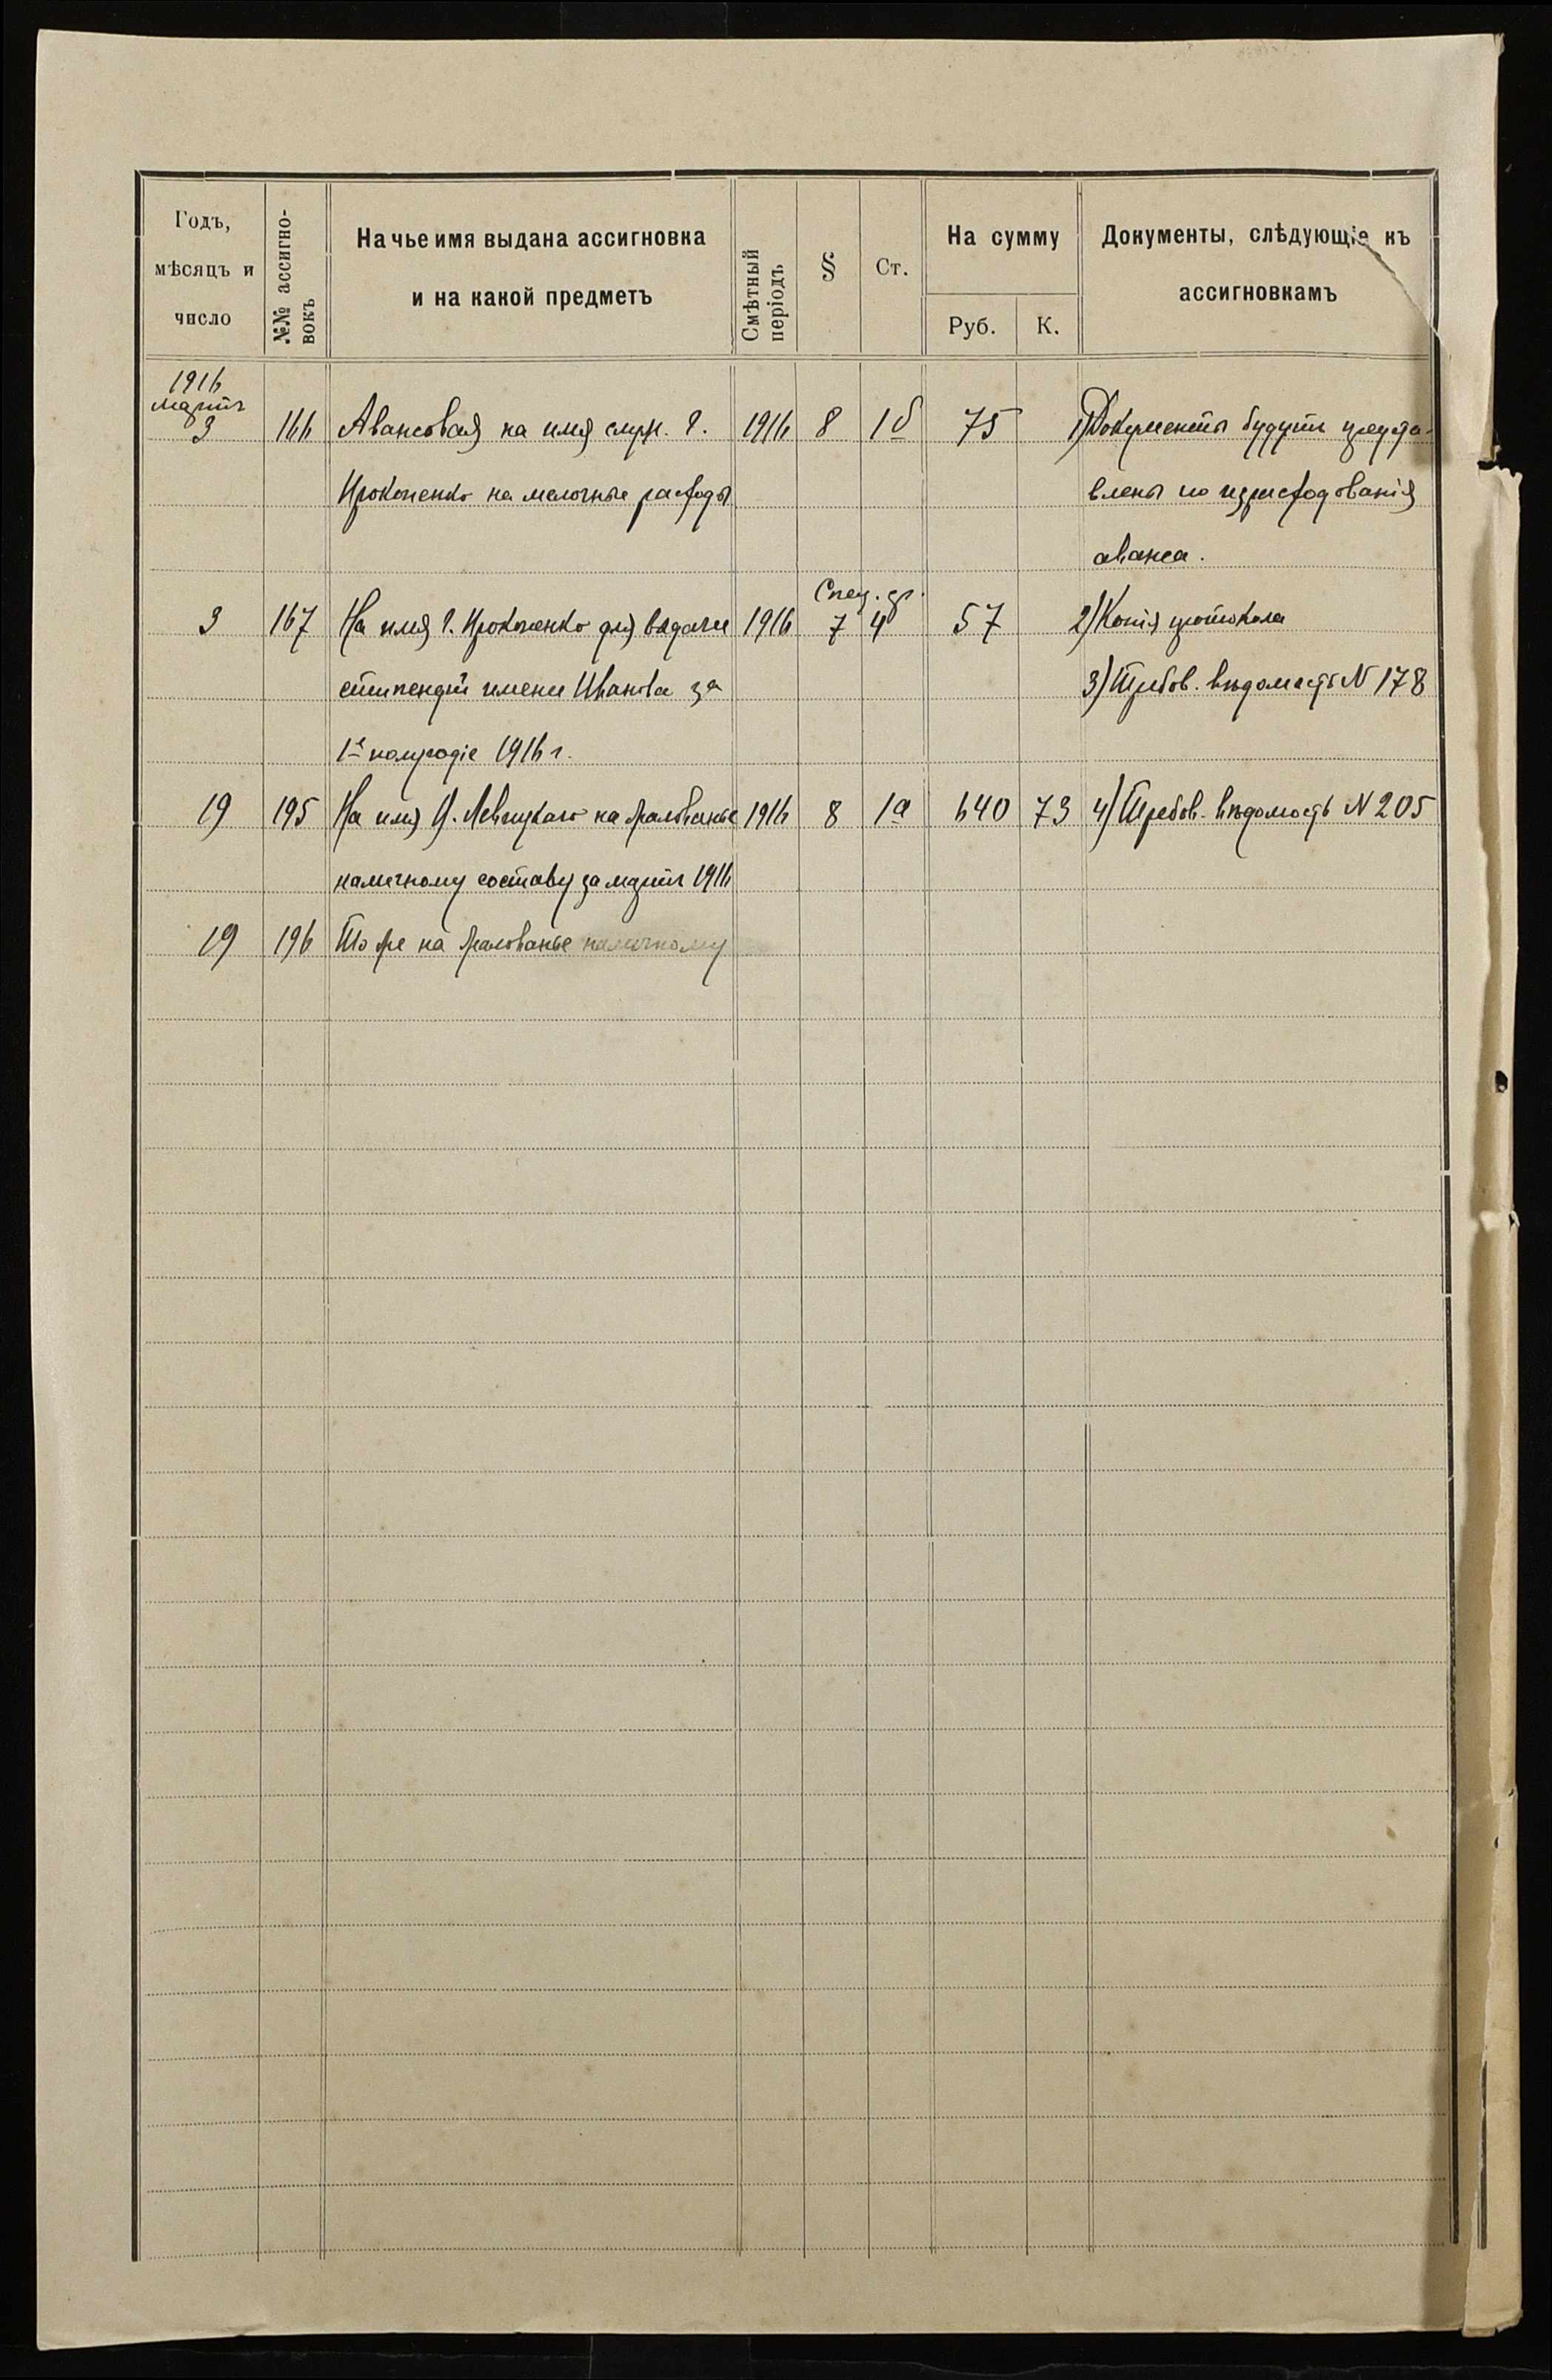 Годъ,
мѣсяцъ и
число
№№ ассигно-
вокъ
На чье имя выдана ассигновка
и на какой предметъ
Смѣтный
періодъ
§
Ст.
На сумму
Руб.
К.
Документы, слѣдующіе къ
ассигновкамъ
1916
мартъ
3 166 Авансовая на имя служ. Г. 1916 8 1б 75 1) Документы будутъ предста-
Прокопенко на мелочные расходы влены по израсходованіи
аванса.
Спец. ср.
3 167 На имя Г. Прокопенко для выдачи 1916 7 4 57 2) Копія протокола
стипендій имени Иванова за 3) Требов. вѣдомость N 178
1е полугодіе 1916 г.
19 195 На имя Левицкаго на жалованье 1916 8 1а 640 73 4) Требов. вѣдомость N 205
наличному составу за мартъ 1916
19 196 То же на жалованье наличному